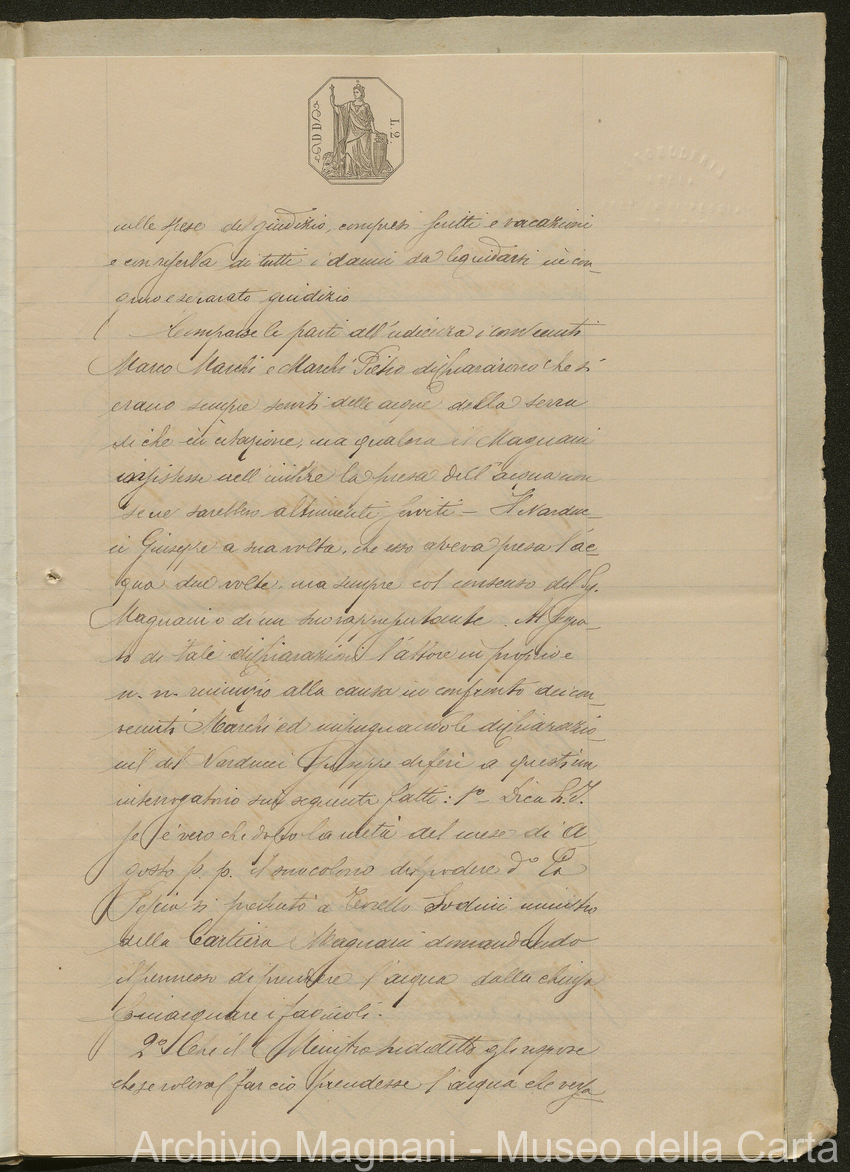 L. 2.
nelle spese del giudizio, compresi scritti e vacazioni
e con riserva di tutti i danni da liquidarsi in con-
gruo e separato giudizio
Comparse le parti all'udienza i convenuti
Marco Marchi e Marchi Pietro dichiararono che si
erano sempre serviti delle acque della serra
di che in citazione, ma qualora il Magnani
insistesse nell'inibire la presa dell'acqua non
se ne sarebbero altrimenti serviti - Il Narduc-
ci Giuseppe a sua volta, che esso aveva presa l'ac-
qua due volte, ma sempre col consenso del Sig.
Magnani o di un suo rappresentante. Al segui-
to di tale dichiarazioni l'attore in proprio e
n. n. rinunziò alla causa in confronto dei con-
venuti Marchi ed impugnando le dichiarazio-
ni del Narducci Giuseppe deferì a questi un
interrogatorio sui seguenti fatti: 1o- Dica
se è vero che dopo la metà del mese di A
gosto p. p. il suo colono del podere do La
Pescia si presentò a Torello Sodini ministro
della Cartiera Magnani domandando
il permesso di prendere l'acqua dalla chiusa
p inacquare i fagiuoli.
2o Che il Ministro suddetto gli rispose
che se voleva far ciò prendesse l'acqua che versa
Archivio Magnani - Museo della Carta